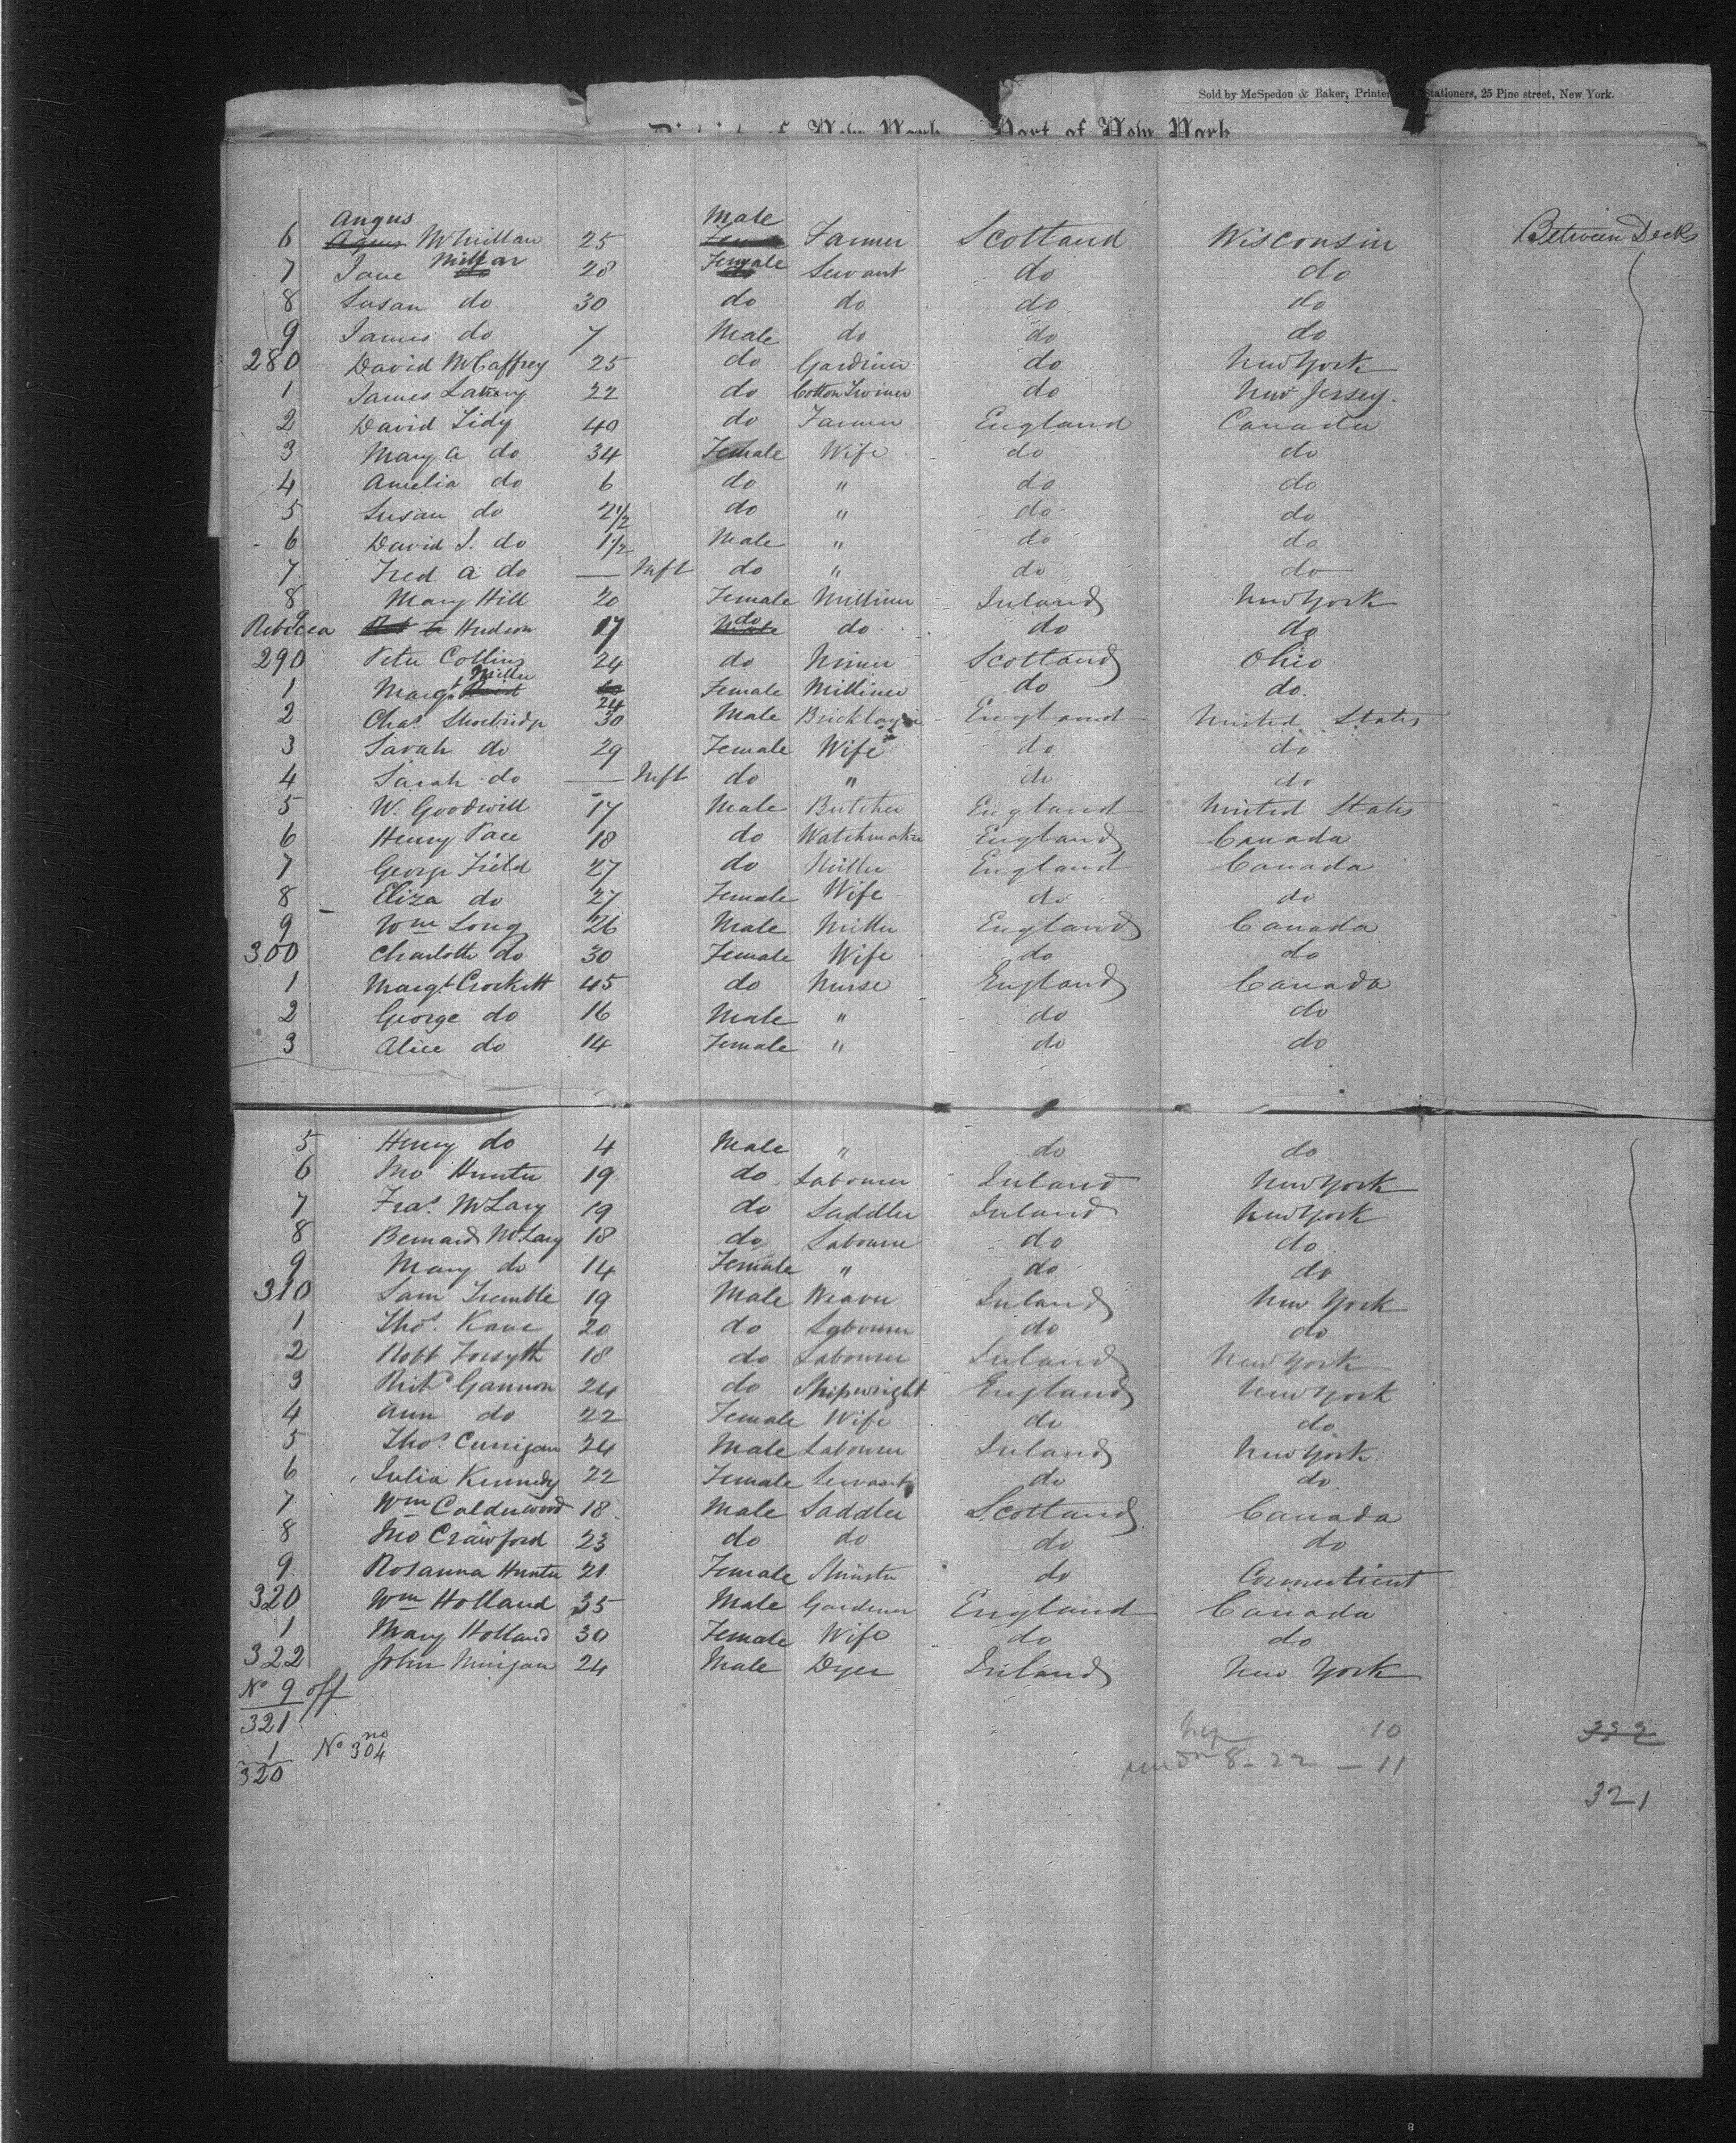 Sold by McSpedon & Baker, Printers Stationers, 25 Pine street, New York.
District of New York Port of New York
6 Angus McMillan 25 Male Farmer Scotland Wisconsin Between Decks
7 Jane Millar 28 Female Servant do do
8 Susan do 30 do do do do
9 James do 7 Male do do do
280 David McCaffrey 25 do Gardiner do New York
1 James 22 do Cotton do New Jersey.
2 David Tidy 40 do Farmer England Canada
3 Mary A do 34 Female Wife do do
4 Amelia do 6 do " do do
5 Susan do 2 1/2 do " do do
6 David J. do 1 1/2 Male " do do
7 Fred A do — Inft do " do do
8 Mary Hill 20 Female Milliner Ireland New York
9 Rebecca Hudson 17 do do do do
290 Peter Collins 24 do Miner Scotland Ohio
1 Margt Miller 24 Female Milliner do do.
2 Chas. Shoebridge 30 Male Bricklayer England United States
3 Sarah do 29 Female Wife do do
4 Sarah do — Inft do " do do
5 W. Goodwill 17 Male Butcher England United States
6 Henry Pace 18 do Watchmaker England Canada
7 George Field 27 do Miller England Canada
8 Eliza do 27 Female Wife do do
9 Wm Long 26 Male Miller England Canada
300 Charlotte do 30 Female Wife do do
1 Margt Crockett 45 do Nurse England Canada
2 George do 16 Male " do do
3 Alice do 14 Female " do do
5 Henry do 4 Male " do do
6 Jno Hunter 19 do Labourer Ireland New York
7 Fras. McLary 19 do Saddler Ireland New York
8 Bernard McLary 18 do Labourer do do
9 Mary do 14 Female " do do
310 Sam Tremble 19 Male Weaver Ireland New York
1 Thos. Kane 20 do Labourer do do
2 Robt Forsyth 18 do Labourer Ireland New York
3 Richd Gannon 24 do Shipwright England New York
4 Ann do 22 Female Wife do do
5 Thos. Cunigan 24 Male Labourer Ireland New York
6 Julia Kennedy 22 Female Servant do do
7 Wm Calderwood 18 Male Saddler Scotland Canada
8 Jno Crawford 23 do do do do
9 Rosanna Hunter 21 Female do Connecticut
320 Wm Holland 35 Male Gardener England Canada
1 Mary Holland 30 Female Wife do do
322 John 24 Male Dyer Ireland New York
No 9 off
321
1 No 304 no
320
10 322
8 - 22 — 11
321